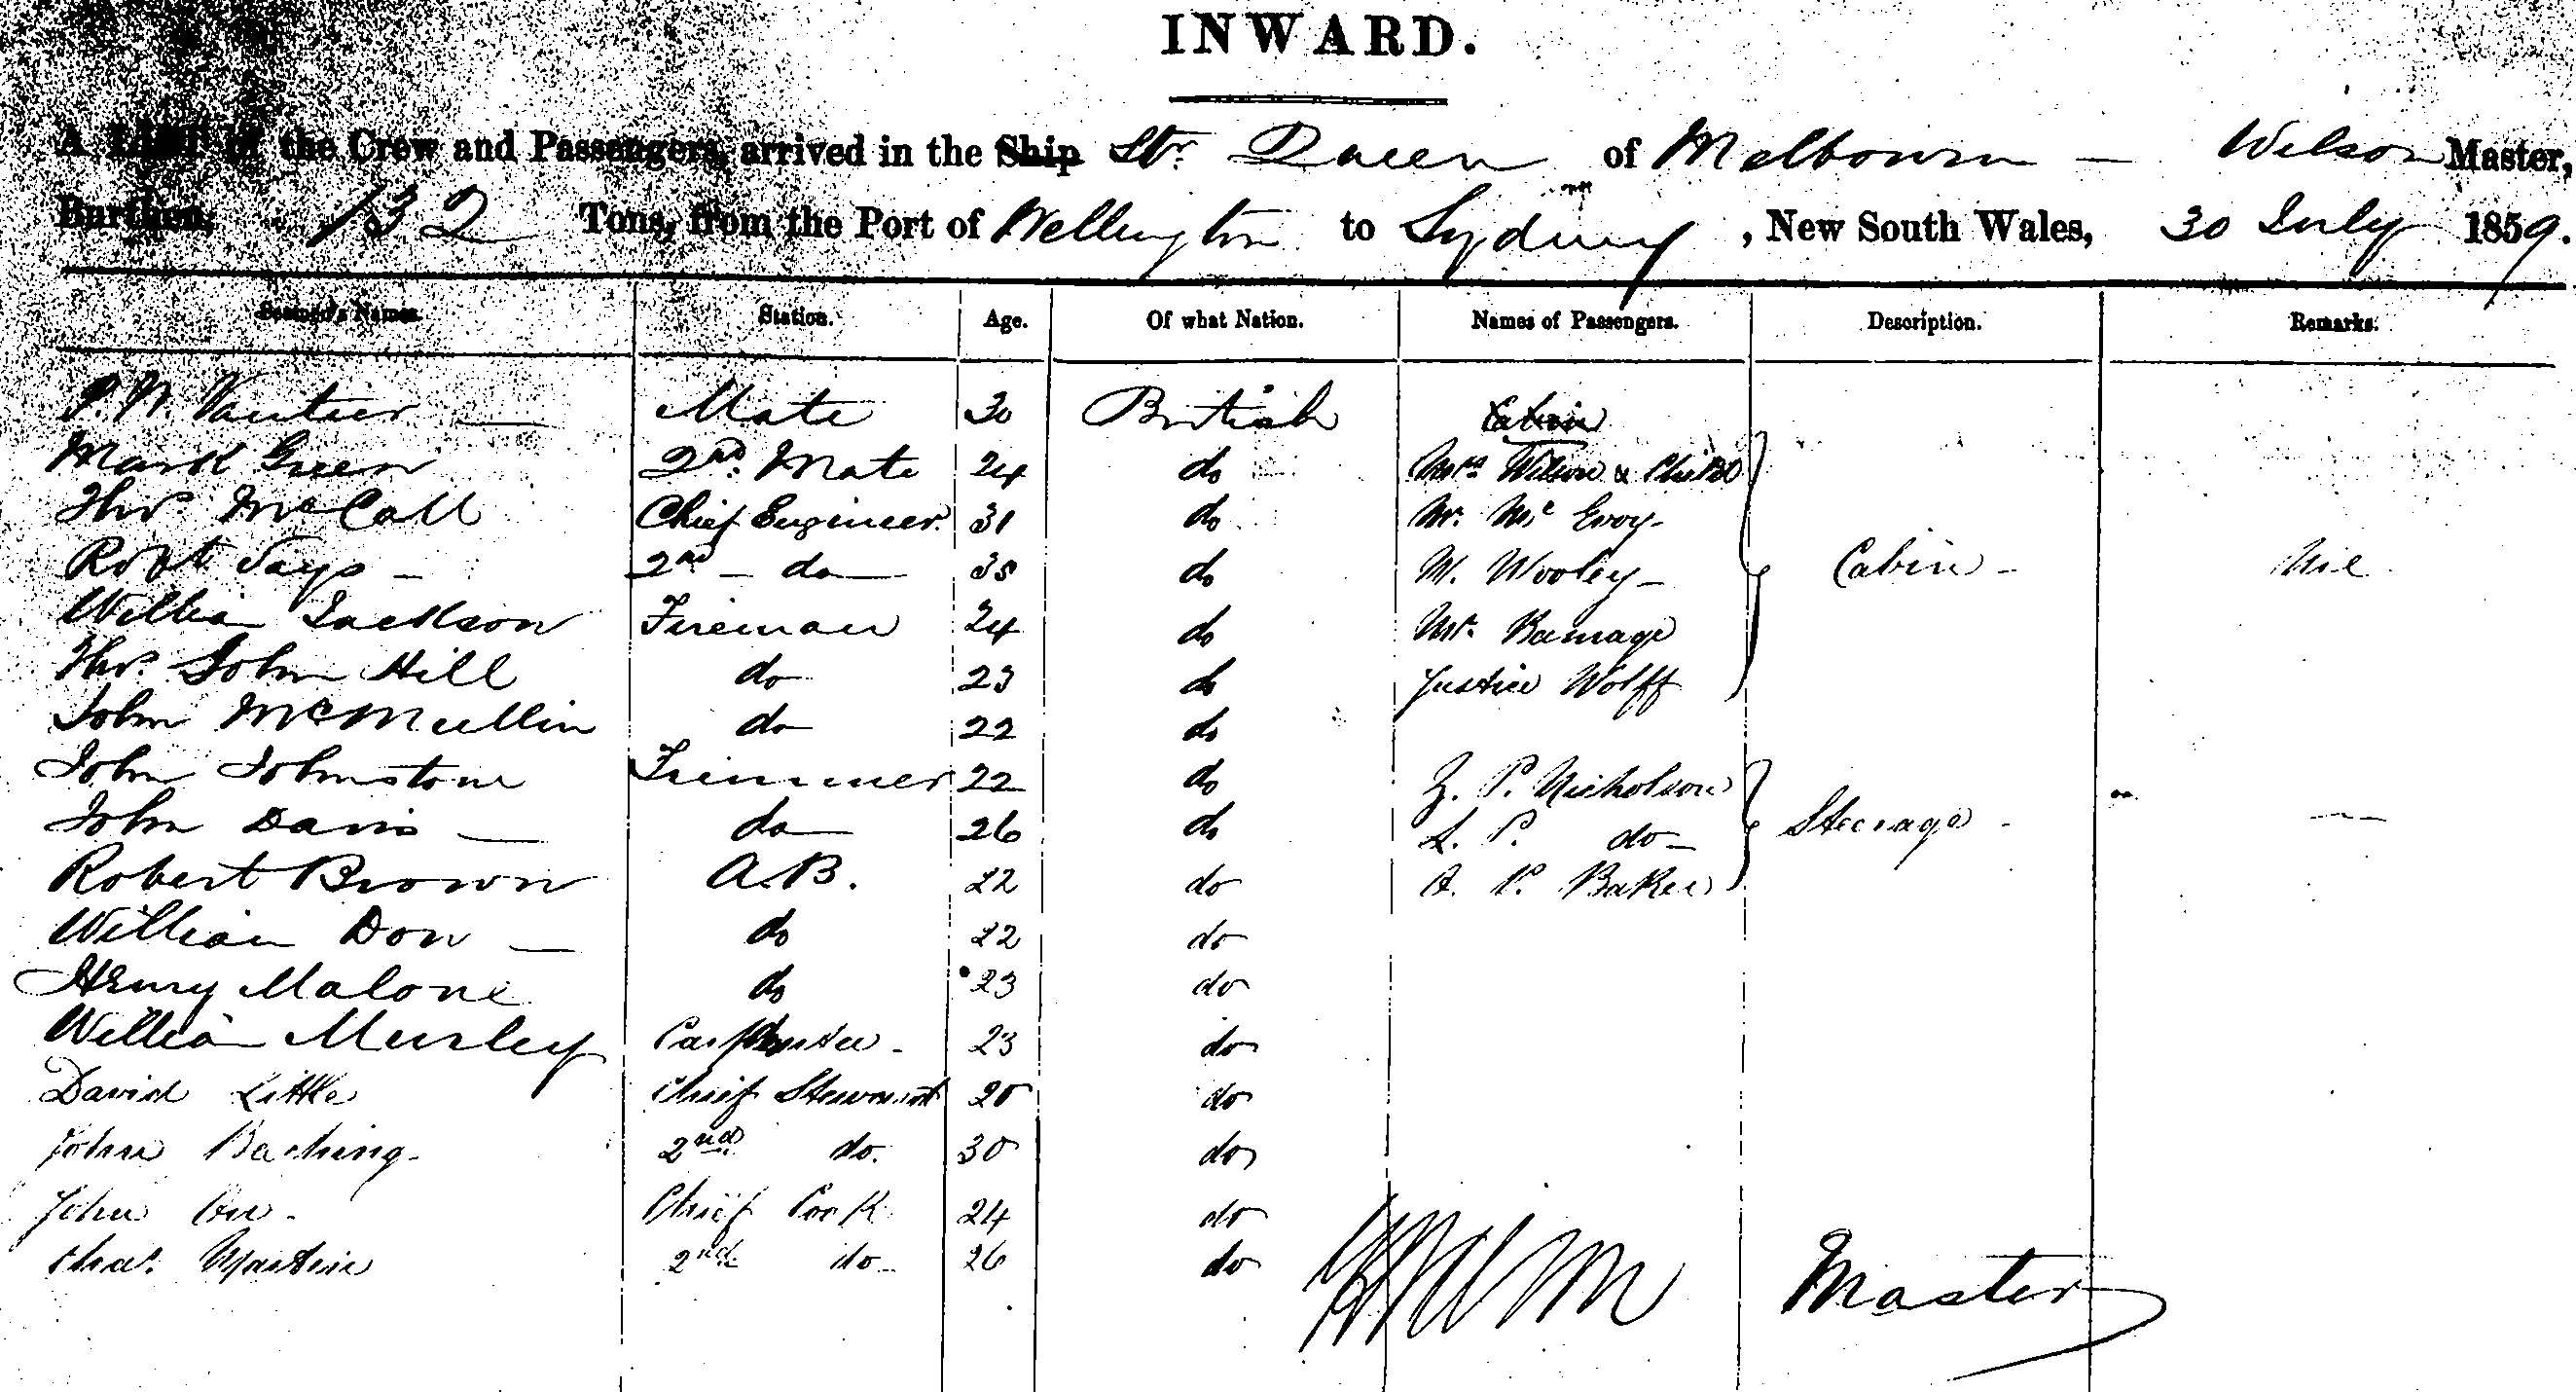 INWARD.
A LIST of the Crew and Passengers, arrived in the Ship Str. Queen of Melbourn — Wilson Master,
Burthen, 132 Tons, from the Port of Wellington to Sydney, New South Wales, 30 July 1859.
Seamen's Names. Station. Age. Of what Nation. Names of Passengers. Description. Remarks.
P. N. Vautier — Mate 30 British Cabin
Mark Green 2nd. Mate 24 do Mrs Wilson & Child
Thos. McCall Chief Engineer. 31 do Mr. Mc Evoy -
Robt Jays - 2nd - do 35 do M. Wooley - Cabin - Nil
William Jackson Fireman 24 do Mr. Ramage
Thos. John Hill do 23 do Justice Wolff
John McMullin do 22 do
John Johnstone Trimmer 22 do Z. P. Nicholson
John Davis — do 26 do L. P. do - Steerage -
Robert Brown A.B. 22 do A. P. Baker
William Don — do 22 do
Henry Malone do 23 do
William Mursley Carpenter - 23 do
David Little Chief Steward 20 do
John 2nd do. 30 do
John Chief Cook 24 do
Chas. Martin 2nd do - 26 do
Master